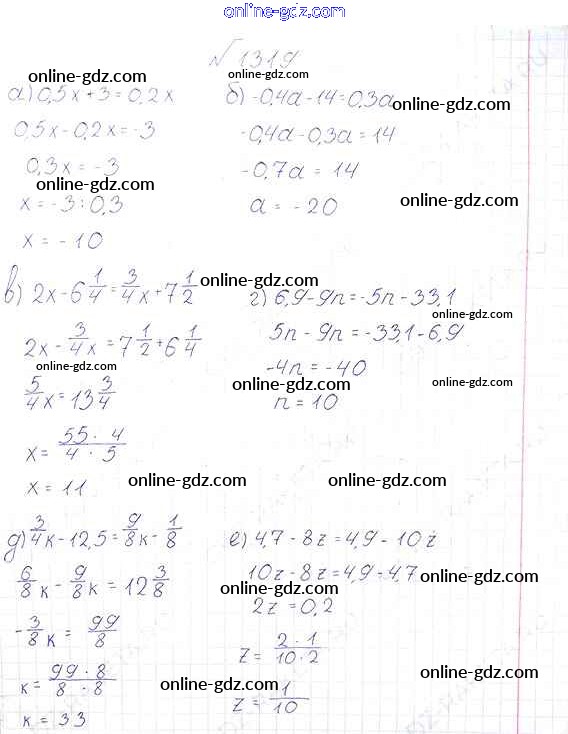 online-gdz.com
№ 1319
online-gdz.com
а) 0,5x + 3 = 0,2x
0,5x - 0,2x = -3
0,3x = -3
online-gdz.com
x = -3 : 0,3
x = -10
б) -0,4a - 14 = 0,3a
online-gdz.com
-0,4a - 0,3a = 14
-0,7a = 14
a = -20
online-gdz.com
в) 2x - 6 1/4 = 3/4 x + 7 1/2
online-gdz.com
2x - 3/4 x = 7 1/2 + 6 1/4
online-gdz.com
5/4 x = 13 3/4
x = 55 · 4 / 4 · 5
x = 11
online-gdz.com
г) 6,9 - 9n = -5n - 33,1
online-gdz.com
5n - 9n = -33,1 - 6,9
-4n = -40
online-gdz.com
online-gdz.com
n = 10
online-gdz.com
д) 3/4 к - 12,5 = 9/8 к - 1/8
6/8 к - 9/8 к = 12 3/8
-3/8 к = 99/8
к = 99 · 8 / 8 · 8
online-gdz.com
к = 33
е) 4,7 - 8z = 4,9 - 10z
10z - 8z = 4,9 - 4,7
online-gdz.com
online-gdz.com
2z = 0,2
z = 2 · 1 / 10 · 2
online-gdz.com
z = 1/10
online-gdz.com